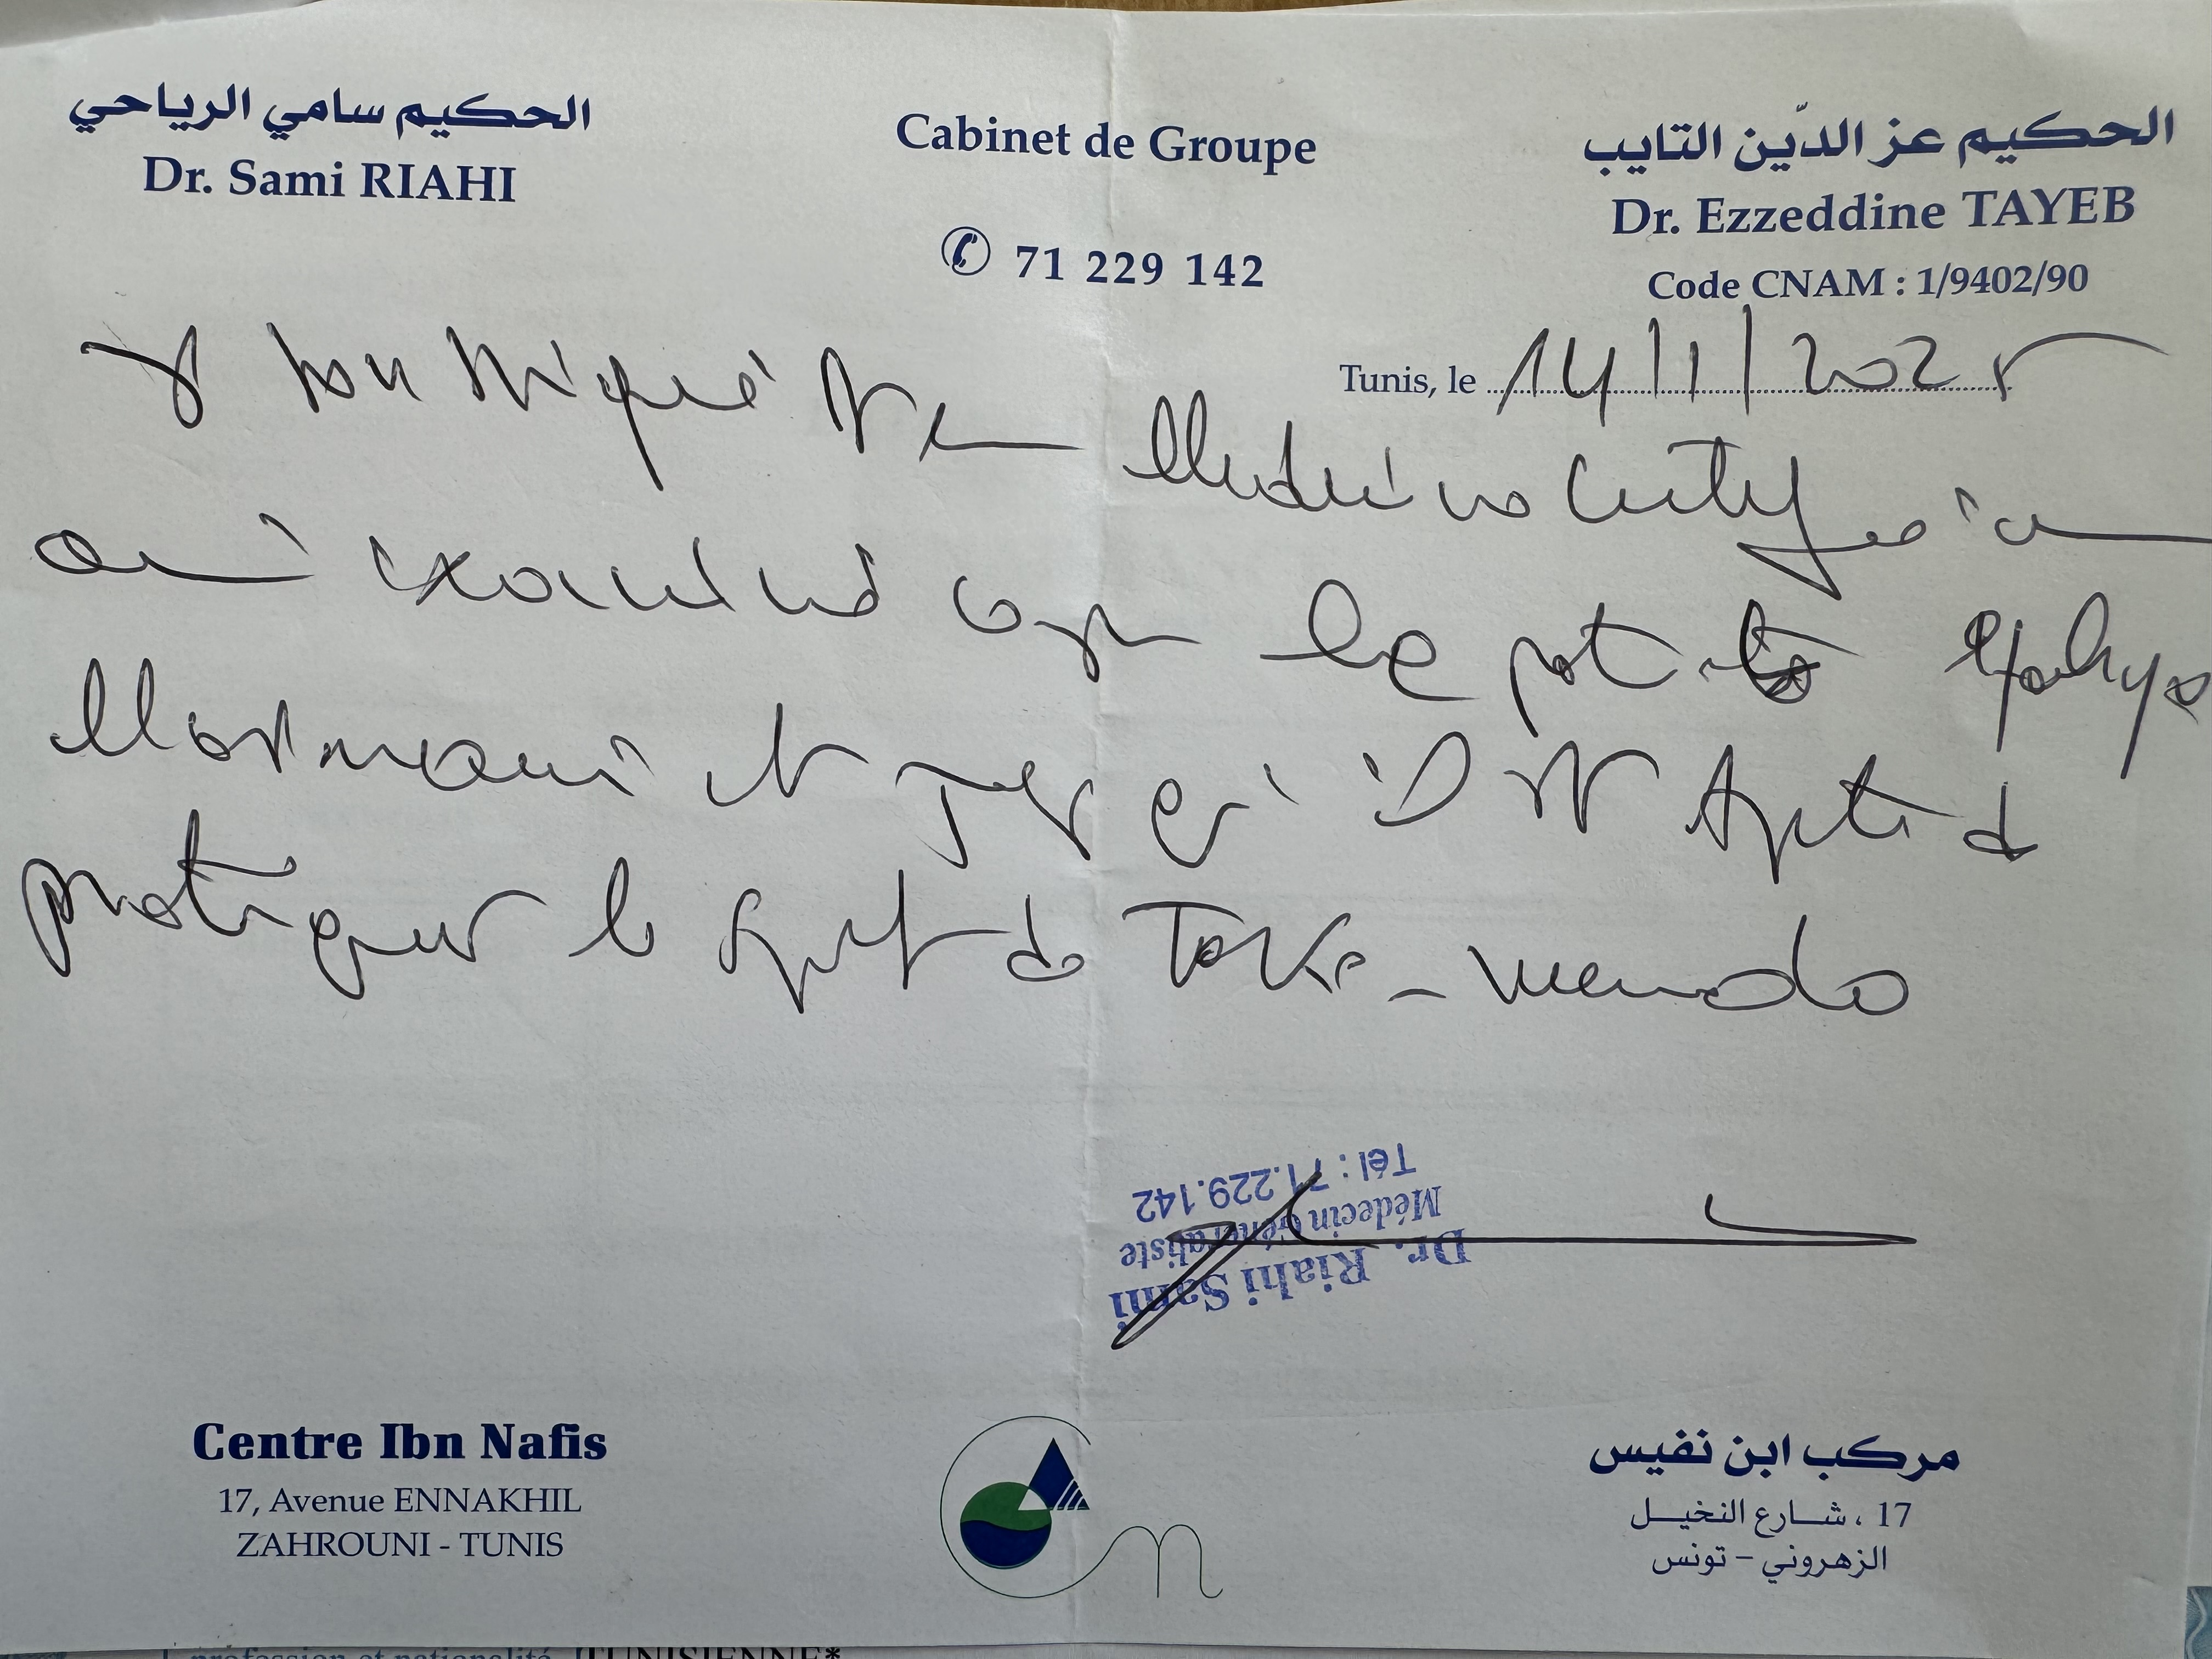 الحكيم سامي الرياحي
Dr. Sami RIAHI
Cabinet de Groupe
71 229 142
الحكيم عز الدّين التايب
Dr. Ezzeddine TAYEB
Code CNAM : 1/9402/90
Tunis, le 14/1/2025
Je soussigné Dr Médecin certifie
avoir examiné ce jour le petit
et qu'il est apte à
pratiquer le sport de
Dr. Riahi Sami
Médecin Généraliste
Tél : 71.229.142
Centre Ibn Nafis
17, Avenue ENNAKHIL
ZAHROUNI - TUNIS
مركب ابن نفيس
17 ، شارع النخيل
الزهروني - تونس
profession et nationalité
TUNISIENNE*